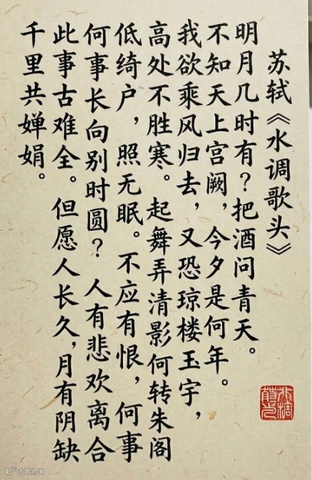 苏轼《水调歌头》
明月几时有？把酒问青天。
不知天上宫阙，今夕是何年。
我欲乘风归去，又恐琼楼玉宇，
高处不胜寒。起舞弄清影何转朱阁
低绮户，照无眠。不应有恨，何事
何事长向别时圆？人有悲欢离合
此事古难全。但愿人长久，月有阴缺
千里共婵娟。